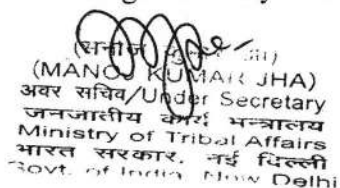 (MANOJ KUMAR JHA)
अवर सचिव/Under Secretary
जनजातीय कार्य मन्त्रालय
Ministry of Tribal Affairs
भारत सरकार, नई दिल्ली
Govt. of India, New Delhi